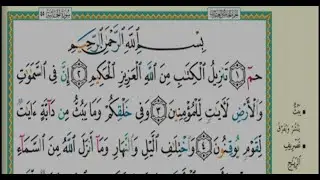 بِسْمِ ٱللَّهِ ٱلرَّحْمَٰنِ ٱلرَّحِيمِ
حمٓ ١ تَنزِيلُ ٱلْكِتَٰبِ مِنَ ٱللَّهِ ٱلْعَزِيزِ ٱلْحَكِيمِ ٢ إِنَّ فِى ٱلسَّمَٰوَٰتِ
وَٱلْأَرْضِ لَءَايَٰتٍ لِّلْمُؤْمِنِينَ ٣ وَفِى خَلْقِكُمْ وَمَا يَبُثُّ مِن دَآبَّةٍ ءَايَٰتٌ
لِّقَوْمٍ يُوقِنُونَ ٤ وَٱخْتِلَٰفِ ٱلَّيْلِ وَٱلنَّهَارِ وَمَآ أَنزَلَ ٱللَّهُ مِنَ ٱلسَّمَآءِ
يَبُثُّ
يَنْشُرُ وَيُفَرِّقُ
تَصْرِيفِ